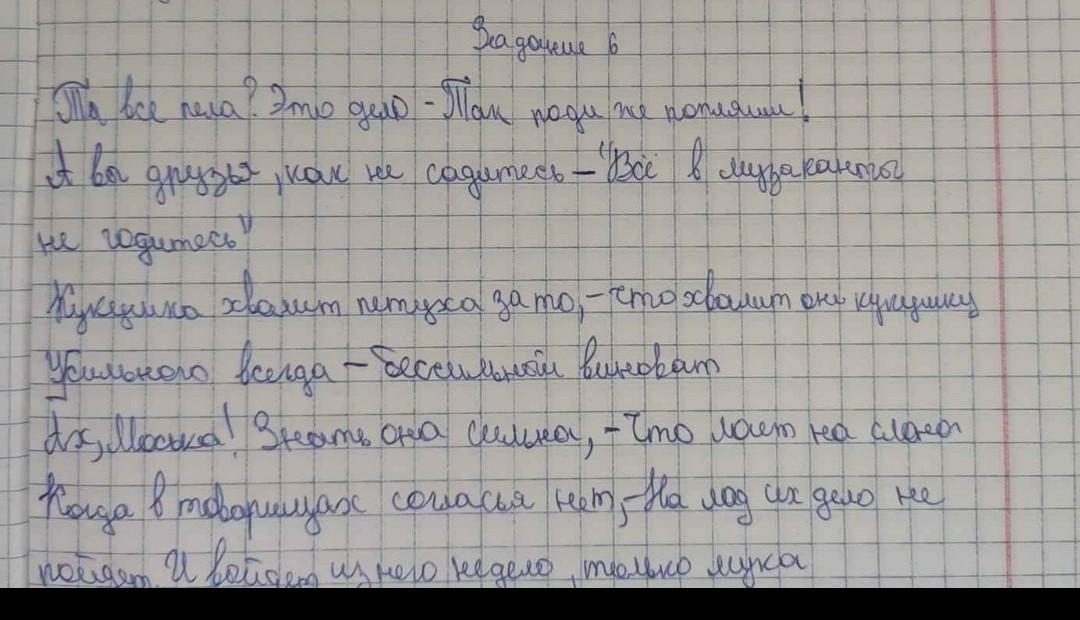 Задание 6
Ты все пела? Это дело - Так поди же попляши!
А вы друзья, как не садитесь - "Всё в музаканты
не годитесь"
Кукушка хвалит петуха за то, - что хвалит он кукушку
У сильного всегда - бессильный виноват
Ах, Моська! Знать она сильна, - Что лает на слона
Когда в товарищах согласья нет, - На лад их дело не
пойдет. И выйдет из него не дело, только мука